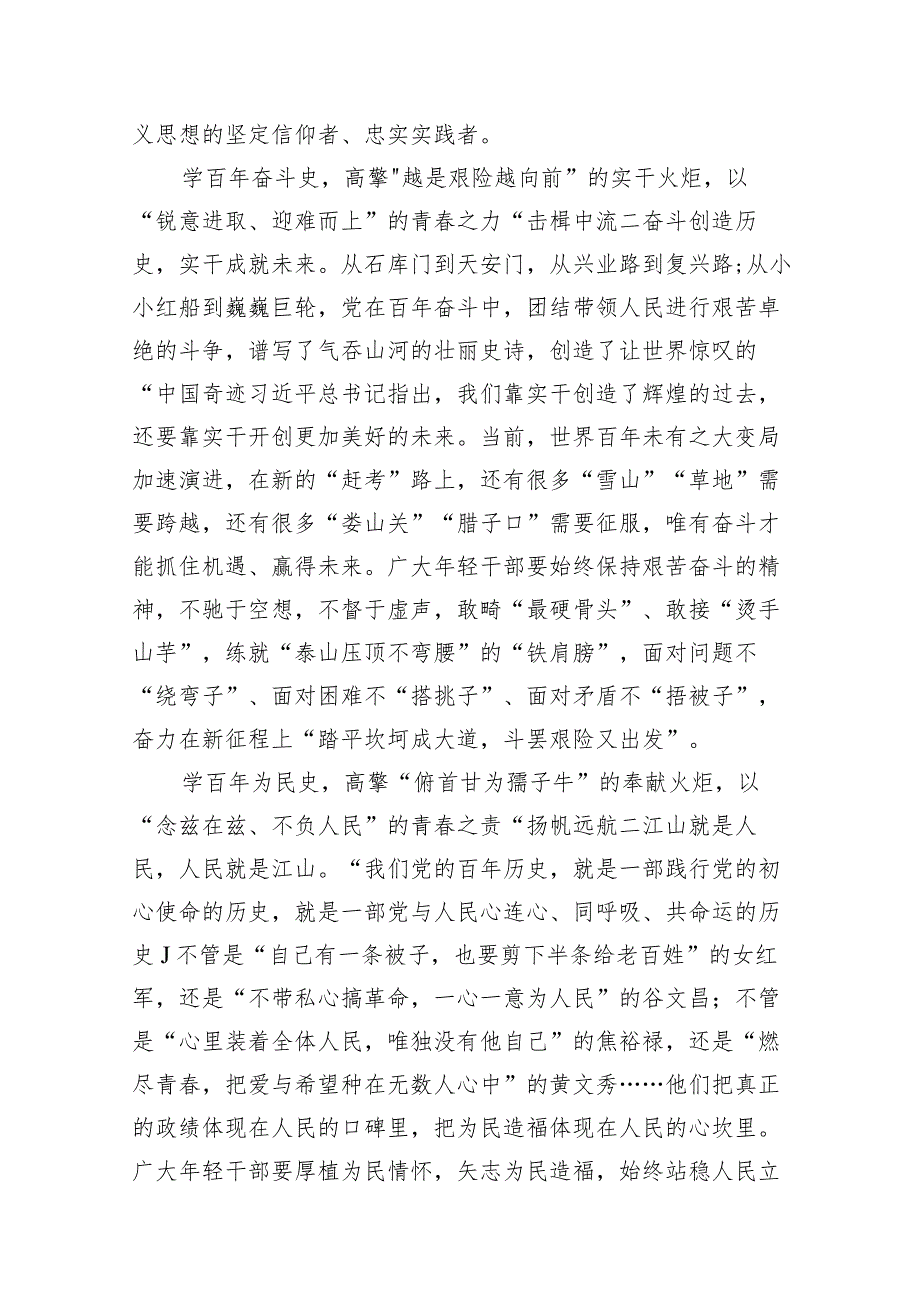 义思想的坚定信仰者、忠实实践者。
学百年奋斗史，高擎"越是艰险越向前”的实干火炬，以
“锐意进取、迎难而上”的青春之力“击楫中流二奋斗创造历
史，实干成就未来。从石库门到天安门，从兴业路到复兴路;从小
小红船到巍巍巨轮，党在百年奋斗中，团结带领人民进行艰苦卓
绝的斗争，谱写了气吞山河的壮丽史诗，创造了让世界惊叹的
“中国奇迹习近平总书记指出，我们靠实干创造了辉煌的过去，
还要靠实干开创更加美好的未来。当前，世界百年未有之大变局
加速演进，在新的“赶考”路上，还有很多“雪山”“草地”需
要跨越，还有很多“娄山关”“腊子口”需要征服，唯有奋斗才
能抓住机遇、赢得未来。广大年轻干部要始终保持艰苦奋斗的精
神，不驰于空想，不督于虚声，敢畸“最硬骨头”、敢接“烫手
山芋”，练就“泰山压顶不弯腰”的“铁肩膀”，面对问题不
“绕弯子”、面对困难不“搭挑子”、面对矛盾不“捂被子”，
奋力在新征程上“踏平坎坷成大道，斗罢艰险又出发”。
学百年为民史，高擎“俯首甘为孺子牛”的奉献火炬，以
“念兹在兹、不负人民”的青春之责“扬帆远航二江山就是人
民，人民就是江山。“我们党的百年历史，就是一部践行党的初
心使命的历史，就是一部党与人民心连心、同呼吸、共命运的历
史J不管是“自己有一条被子，也要剪下半条给老百姓”的女红
军，还是“不带私心搞革命，一心一意为人民”的谷文昌；不管
是“心里装着全体人民，唯独没有他自己”的焦裕禄，还是“燃
尽青春，把爱与希望种在无数人心中”的黄文秀……他们把真正
的政绩体现在人民的口碑里，把为民造福体现在人民的心坎里。
广大年轻干部要厚植为民情怀，矢志为民造福，始终站稳人民立